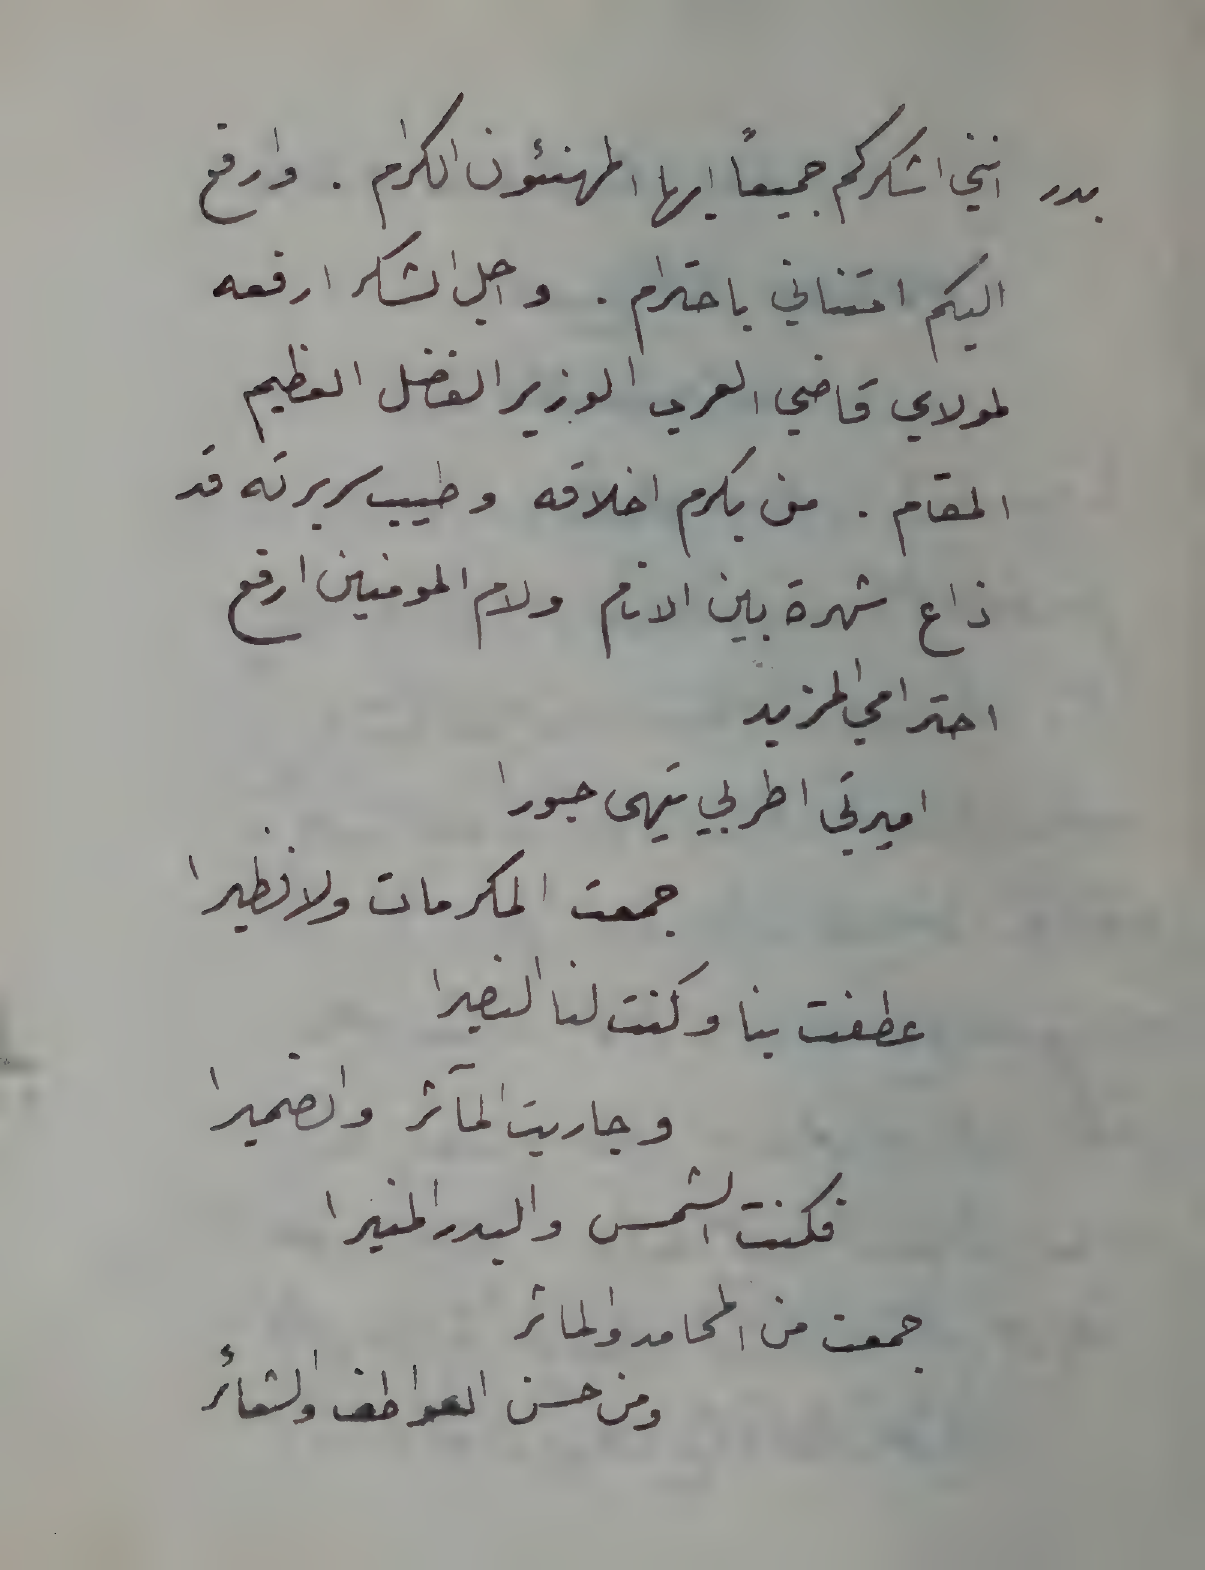 بدر انني اشكركم جميعاً ايها المهنئون الكرام . وارفع
اليكم امتناني باحترام . واجل الشكر ارفعه
لمولاي قاضي العرب الوزير الفضل العظيم
المقام . من بكرم اخلاقه وطيب سريرته قد
ذاع شهرة بين الانام ولام المومنين ارفع
احترامي المزيد
اميرتي اطربي تيهى حبورا
جمعت المكرمات ولا نظيرا
عطفت بنا وكنت لنا النصيرا
وجاريت المآثر والضميرا
فكنت الشمس والبدر المنيرا
جمعت من المحامد والماثر
ومن حسن العواطف والشعائر